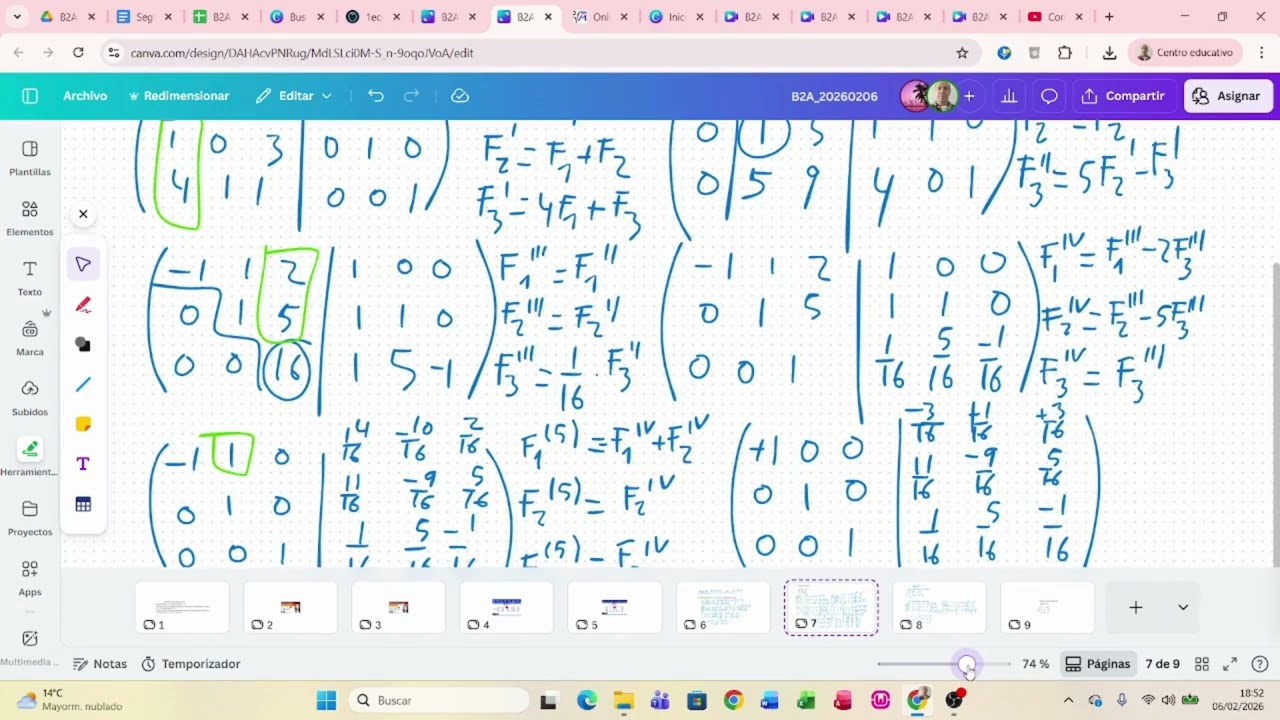 B2A
Seg
B2A
Bus
1ec
B2A
B2A
Onl
Inic
B2A
B2A
B2A
B2A
Cor
canva.com/design/DAHAcvPNRug/MdLSLci0M-S_n-9oqoJVoA/edit
Centro educativo
Archivo
Redimensionar
Editar
B2A_20260206
Compartir
Asignar
Plantillas
Elementos
Texto
Marca
Subidos
Herramient...
Proyectos
Apps
Multimedia ...
1 0 3 | 0 1 0 F₂' = F₁ + F₂
4 1 1 | 0 0 1 F₃' = 4F₁ + F₃
0 1 5 | 1 1 0
0 5 9 | 4 0 1 F₃'' = 5F₂' - F₃'
-1 1 2 | 1 0 0 F₁''' = F₁''
0 1 5 | 1 1 0 F₂''' = F₂''
0 0 16 | 1 5 -1 F₃''' = 1/16 · F₃''
-1 1 2 | 1 0 0 F₁^IV = F₁''' - 2F₃'''
0 1 5 | 1 1 0 F₂^IV = F₂''' - 5F₃'''
0 0 1 | 1/16 5/16 -1/16 F₃^IV = F₃'''
-1 1 0 | 14/16 -10/16 2/16 F₁^(5) = F₁^IV + F₂^IV
0 1 0 | 11/16 -9/16 5/16 F₂^(5) = F₂^IV
0 0 1 | 1/16 5/16 -1/16
+1 0 0 | -3/16 +1/16 +3/16
0 1 0 | 11/16 -9/16 5/16
0 0 1 | 1/16 5/16 -1/16
1
2
3
4
5
6
7
8
9
Notas
Temporizador
74 %
Páginas
7 de 9
14°C
Mayorm. nublado
Buscar
18:52
06/02/2026